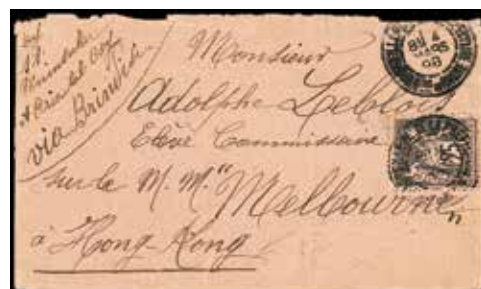 via Brindisi
Monsieur
Adolphe Leblois
Elève Commissaire
sur le M. M. "Melbourne"
à Hong Kong
8E 4
MARS
98